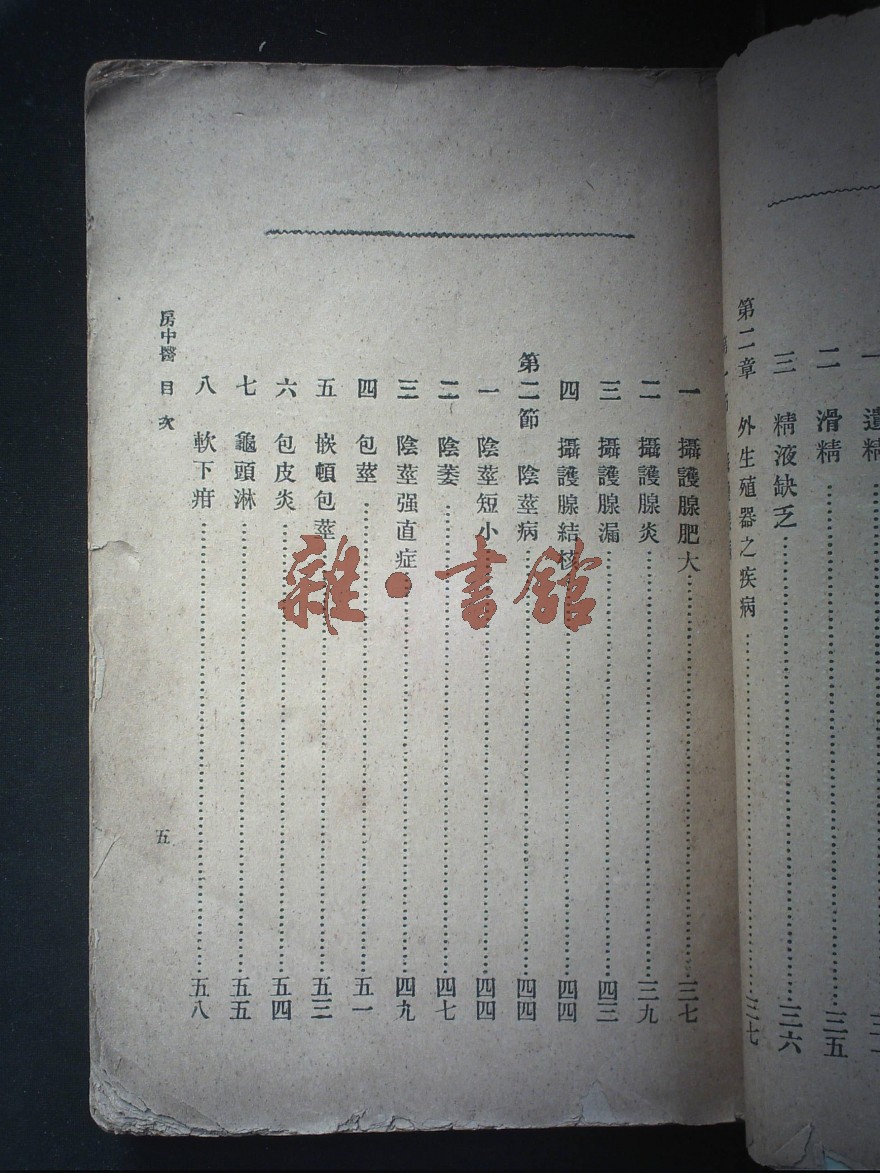 遺精
二 滑精……三五
三 精液缺乏……三六
第二章 外生殖器之疾病……三七
一 攝護腺肥大……三七
二 攝護腺炎……三九
三 攝護腺漏……四三
四 攝護腺結核……四四
第二節 陰莖病……四四
一 陰莖短小……四四
二 陰萎……四七
三 陰莖强直症……四九
四 包莖……五一
五 嵌頓包莖……五三
六 包皮炎……五四
七 龜頭淋……五五
八 軟下疳……五八
房中醫 目次
五
雜·書館